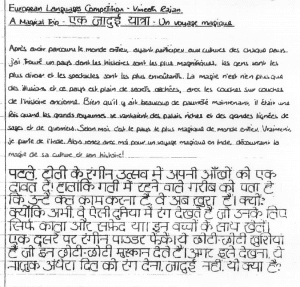 European Languages Competition - Vineeth Rajan
A Magical Trip - एक जादुई यात्रा - Un voyage magique
Après avoir parcouru le monde entier, ayant participé aux cultures des chaque pays,
j'ai trouvé un pays dont les histoires sont les plus magnifiques, les gens sont les
plus divers et les spectacles sont les plus envoûtants. La magie n'est rien plus que
des illusions et ce pays est plein de secrets cachés, avec les couches sur couches
de l'histoire ancienne. Bien qu'il y ait beaucoup de pauvreté maintenant, il était une
fois quand les grands royaumes se vantaient des palais riches et des grandes lignées de
sages et de guerriers. Selon moi, c'est le pays le plus magique du monde entier. Vraiment,
je parle de l'Inde. Alors venez avec moi pour un voyage magique en Inde, découvrant la
magie de sa culture et son histoire!
पहले, होली के रंगीन उत्सव में अपनी आँखों को एक
दावत दें। हालांकि गली में रहने वाले गरीब को पता है
कि उन्हें कल काम करना है, वे अब खुश हैं। क्यों?
क्योंकि अभी, वे ऐसी दुनिया में रंग देखते हैं जो उनके लिए
सिर्फ काला और सफेद था। इन बच्चों के साथ खेलें।
एक दूसरे पर रंगीन पाउडर फेंकें। ये छोटी-छोटी खुशियां
हैं जो इन छोटी-छोटी मुस्कान देते हैं। अगर इसे देखना, ये
नाजुक अंधेरा दिल को रंग देना, जादुई नहीं, यो क्या है?